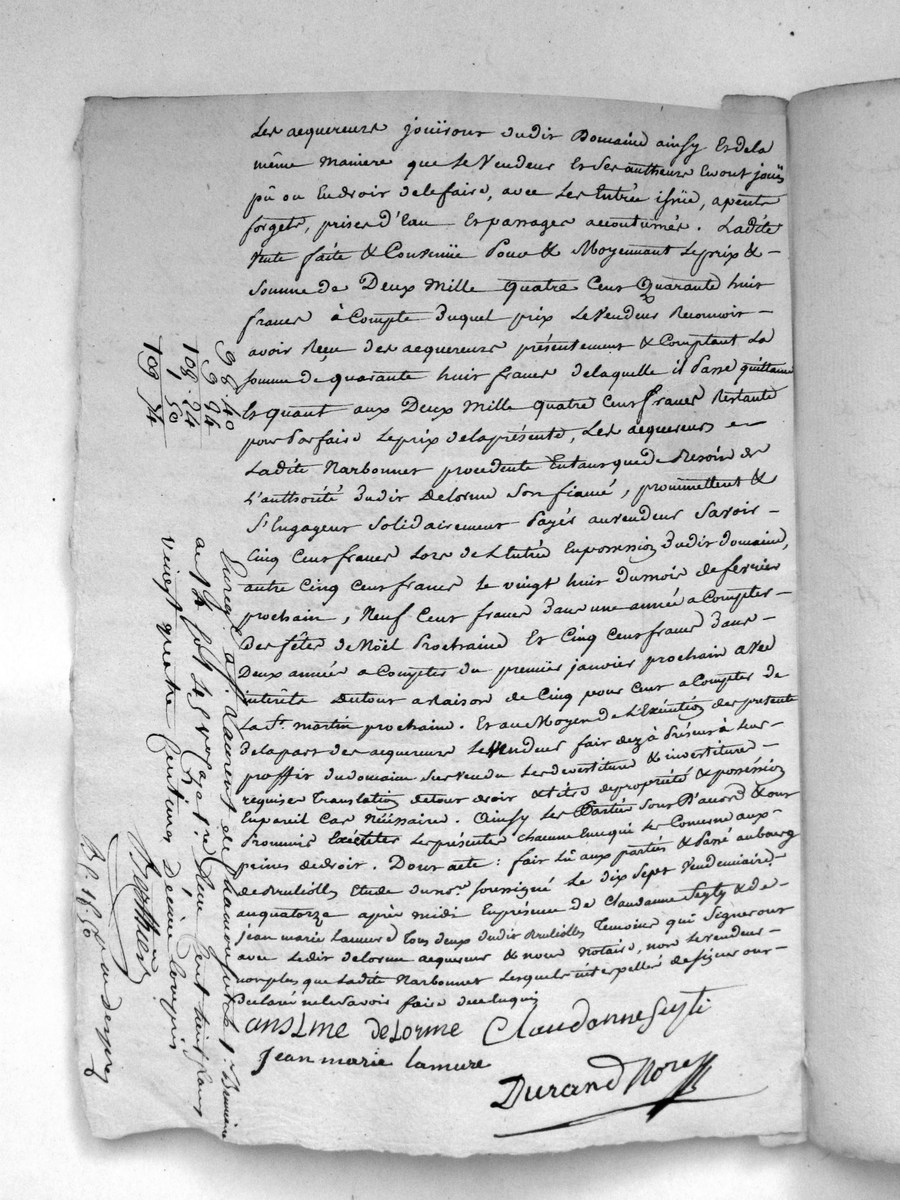 Les aequereurs joüirout dudit Domaine ainsy Et dela
même maniere que Le Vendeur Et Ses autheurs En ont joüis
pû ou Eu droit de le faire, avec Ses Entrée issüe, apents
forgets, prises d'Eau Et passages accoutumés. Ladite
Vente faite & Convenüe Pour & Moyennant Le prix &
Somme de Deux Mille Quatre Cent Quarante huit
francs à Compte duquel prix Le Vendeur Reconnoit
avoir Reçu des aequereurs présentement & Comptant La
Somme de quarante huit francs de laquelle il Passe quittance
Et quant aux Deux Mille quatre Cent francs Restants
pour Parfaire Le prix de la présente, Les aequereurs
Ladite Narbonnet procedente En tant que de Besoin de
L'authorité dudit Delorme Son fiancé, promettent &
S'Engagent Solidairement Payés au vendeur Savoir
Cinq Cent francs Lors de L'Entrée En possession dudit domaine,
autre Cinq Cent francs Le vingt huit du mois de fevrier
prochain, Neuf Cent francs dans une année a Compter
des fêtes de Noël Prochaine Et Cinq Cent francs dans
Deux année a Compter du premier janvier prochain avec
intérêts du tout a raison de Cinq pour Cent a Compter de
La St. martin prochaine. Et au Moyen de L'Exécution des présente
de la part des aequereurs Le Vendeur fait dez à Présent à Leur
proffit du domaine Sus Vendu Les devestiture & investiture
requises Translation de tout droit & titre de propriété & possession
En pareil Cas Nécessaire. Ainsy Les Parties Sont D'accord & ont
Promis Exécuter Les présentes chacune En ce qui Les Concerne aux
peines de droit. Dont acte: fait Lû aux parties & Passé au bourg
de Brulliolles Etude du nre. soussigné Le dix Sept Vendemiaire
an quatorze après midi En présence de Claudanne Seyty & de
jean marie Lamure Tous deux dudit Brulliolles Temoins qui Signeront
avec Ledit delorme aequereur & nous Notaire, non Le vendeur
non plus que Ladite Narbonnet Lesquels interpellés de Signer ont
déclaré ne le Savoir faire de ce Enquis
anslme delorme Claudanne Seyti
Jean marie lamure
Durand Nore
98.40
9 94
108.24
1 50
109 74
Enregé a St. Laurent de Chamousset le 1er. Brumaire
an 14
Reçu Cent huit francs
vingt quatre Centimes dixième Compris
Berthier